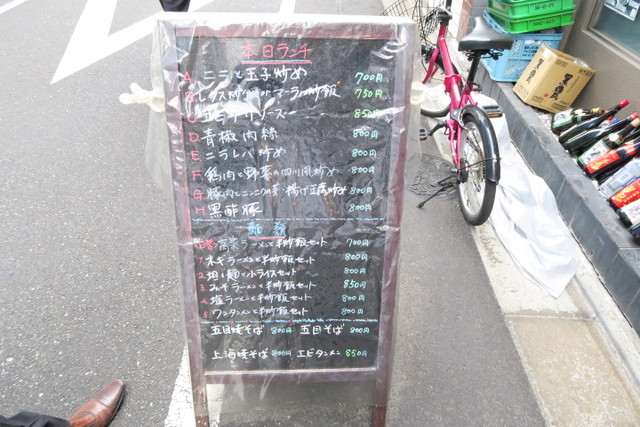 本日ランチ
A ニラと玉子炒め 700円
レタス炒飯orマーラー炒飯 750円
ソース 850円
D 青椒肉絲 800円
E ニラレバ炒め 800円
F 鶏肉と野菜の四川風炒め 800円
G 豚肉とニンニクの芽・揚げ豆腐炒め 800円
H 黒酢豚 800円
麺類
高菜ラーメンと半炒飯セット 700円
1. ネギラーメンと半炒飯セット 800円
2. 坦々麺と小ライスセット 800円
3. みそラーメンと半炒飯セット 850円
4. 塩ラーメンと半炒飯セット 800円
5. ワンタンメンと半炒飯セット 800円
五目焼そば 800円 五目そば 800円
上海焼そば 800円 エビタンメン 850円